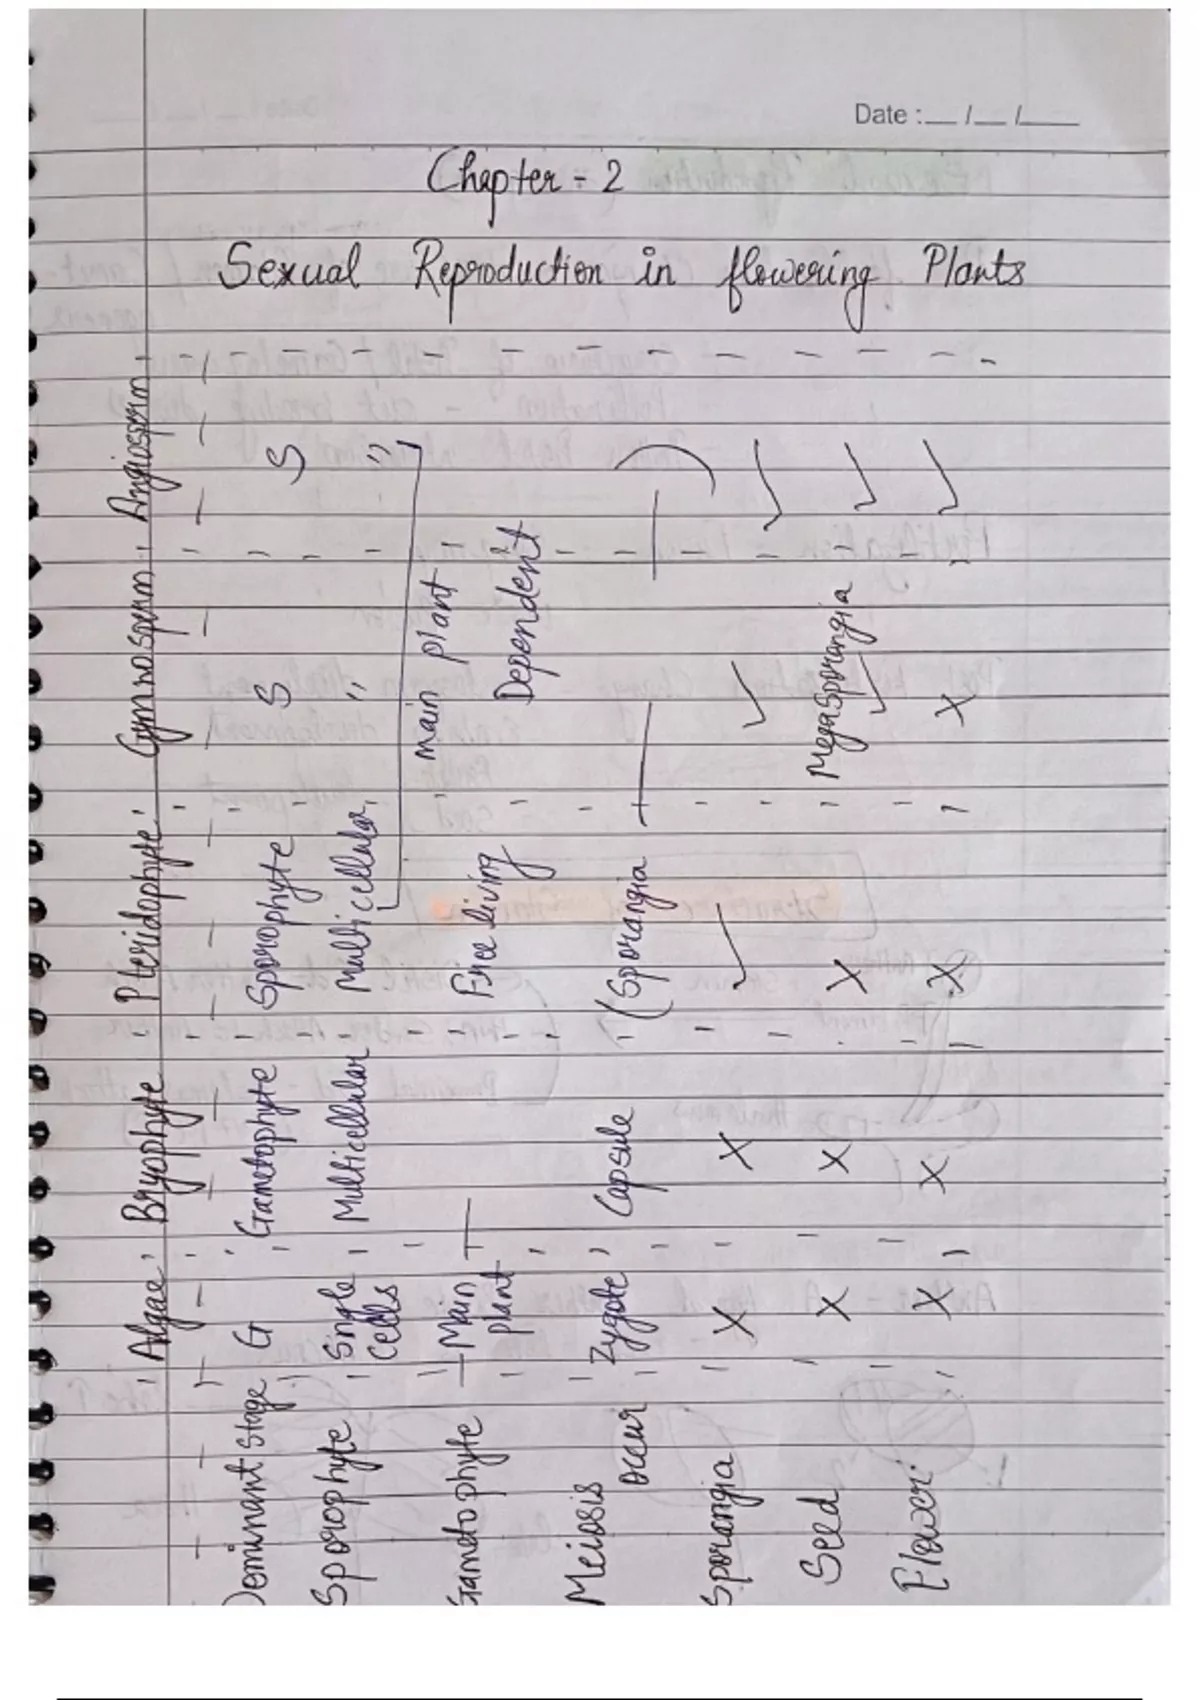 Date : __ / __ / ____
Chapter - 2
Sexual Reproduction in flowering Plants
Algae Bryophyte Pteridophyte Gymnosperm Angiosperm
Dominant stage G Gametophyte Sporophyte S S
Sporophyte Single cells Multicellular Multicellular " "
main plant
Gametophyte Main plant Free living Dependent
Meiosis occur Zygote Capsule (Sporangia )
Sporangia X X ✓ ✓ ✓
Seed X X X MegaSporangia ✓ ✓
Flower X X X X ✓